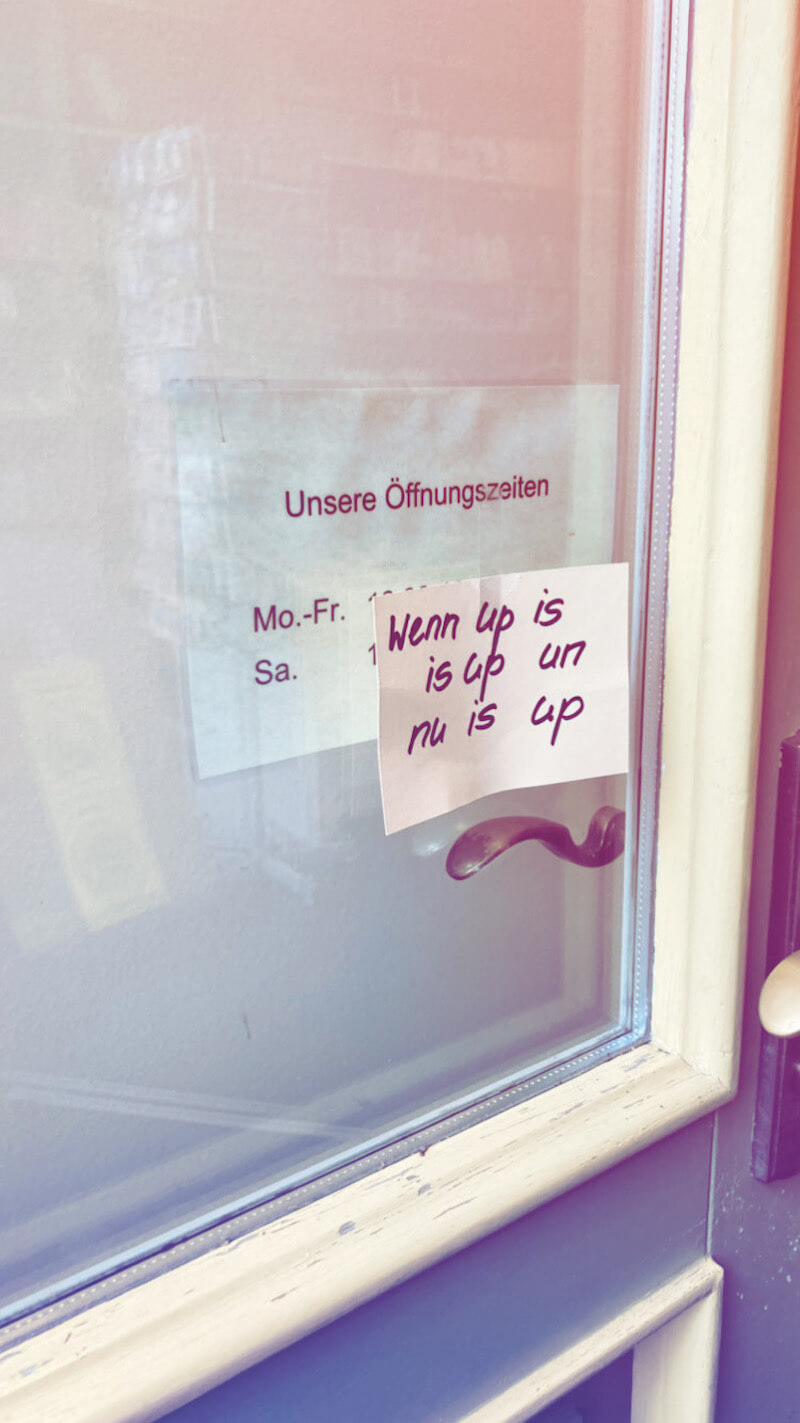 Unsere Öffnungszeiten
Mo.-Fr.
Sa.
Wenn up is
is up un
nu is up